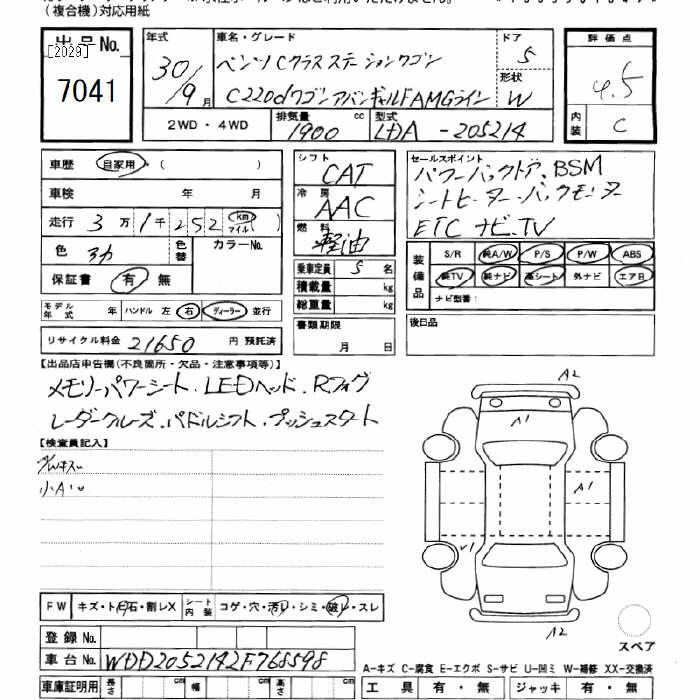 (複合機)対応用紙
出品No.
[2029]
7041
年式 30/9月
車名・グレード
ベンツCクラスステーションワゴン
C220dワゴンアバンギャルドAMGライン
ドア 5
形状 W
評価点
4.5
内装 C
2WD・4WD
排気量 1900 cc
型式 LDA-205214
車歴 自家用・( )
車検 年 月
走行 3万1千252 km マイル ( )
色
色替
カラーNo.
保証書 有・無
モデル年式 年 ハンドル 左 右 ディーラー 並行
リサイクル料金 21650 円 預託済
シフト CAT
冷房 AAC
燃料 軽油
乗車定員 5 名
積載量 kg
総重量 kg
書類期限
月 日
セールスポイント
パワーバックドア、BSM
シートヒーター・バックモニター
ETC ナビ、TV
装備品
S/R 純A/W P/S P/W ABS
純TV 純ナビ 革シート 外ナビ エアB
ナビ型番:
後日品
【出品店申告欄(不良箇所・欠品・注意事項等)】
メモリーパワーシート、LEDヘッド、Rフォグ
レーダークルーズ、パドルシフト、プッシュスタート
【検査員記入】
小A
A2
A1
A1
A2
FW キズ・ト石・割レX
シート内装 コゲ・穴・汚レ・シミ・破レ・スレ
登録No.
車台No. WDD2052142F768598
車庫証明用 長さ cm 幅 cm 高さ cm
スペア
A-キズ C-腐食 E-エクボ S-サビ U-凹ミ W-補修 XX-交換済
工具 有・無 ジャッキ 有・無